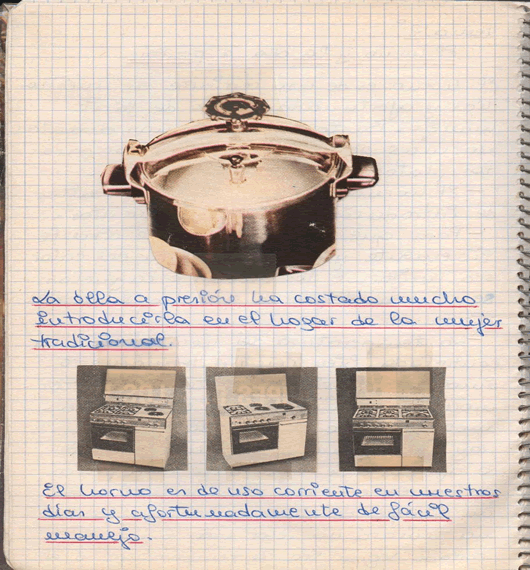 La olla a presión ha costado mucho
introducirla en el hogar de la mujer
tradicional.
El horno es de uso corriente en nuestros
días y afortunadamente de fácil
manejo.